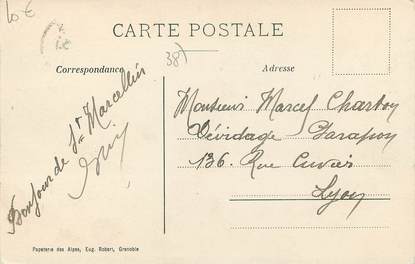 10€
1€
38)
CARTE POSTALE
Correspondance
Adresse
Bonjour de St Marcellin
Monsieur Marcel Charton
Dévidage
136. Rue Cuvier
Lyon
Papeterie des Alpes, Eug. Robert, Grenoble